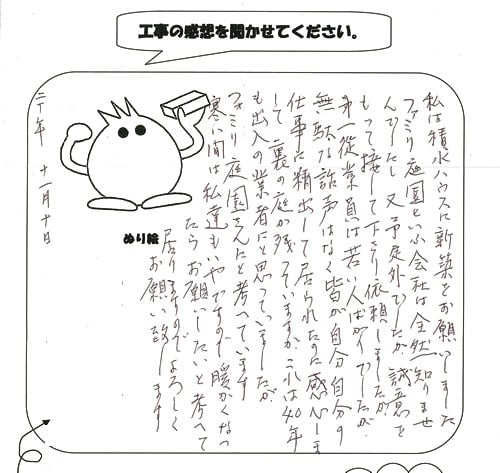 工事の感想を聞かせてください。
私は積水ハウスに新築をお願いしました
ファミリ庭園といふ会社は全然知りませ
んでした 又予定外でしたが 誠意を
もって接して下さり依頼しましたが
第一従業員は若い人ばかりでしたが
無駄な話声はなく皆が自分自分の
仕事に精出して居られたのに感心しま
して 裏の庭が残っていますが これは40年
も出入の業者にと思っていましたが
ファミリ庭園さんにと考へています
寒い間は私達もいやですので 暖かくなっ
たらお願いしたいと考へて
居りますのでよろしく
お願い致します
二十一年 十一月十日
ぬり絵